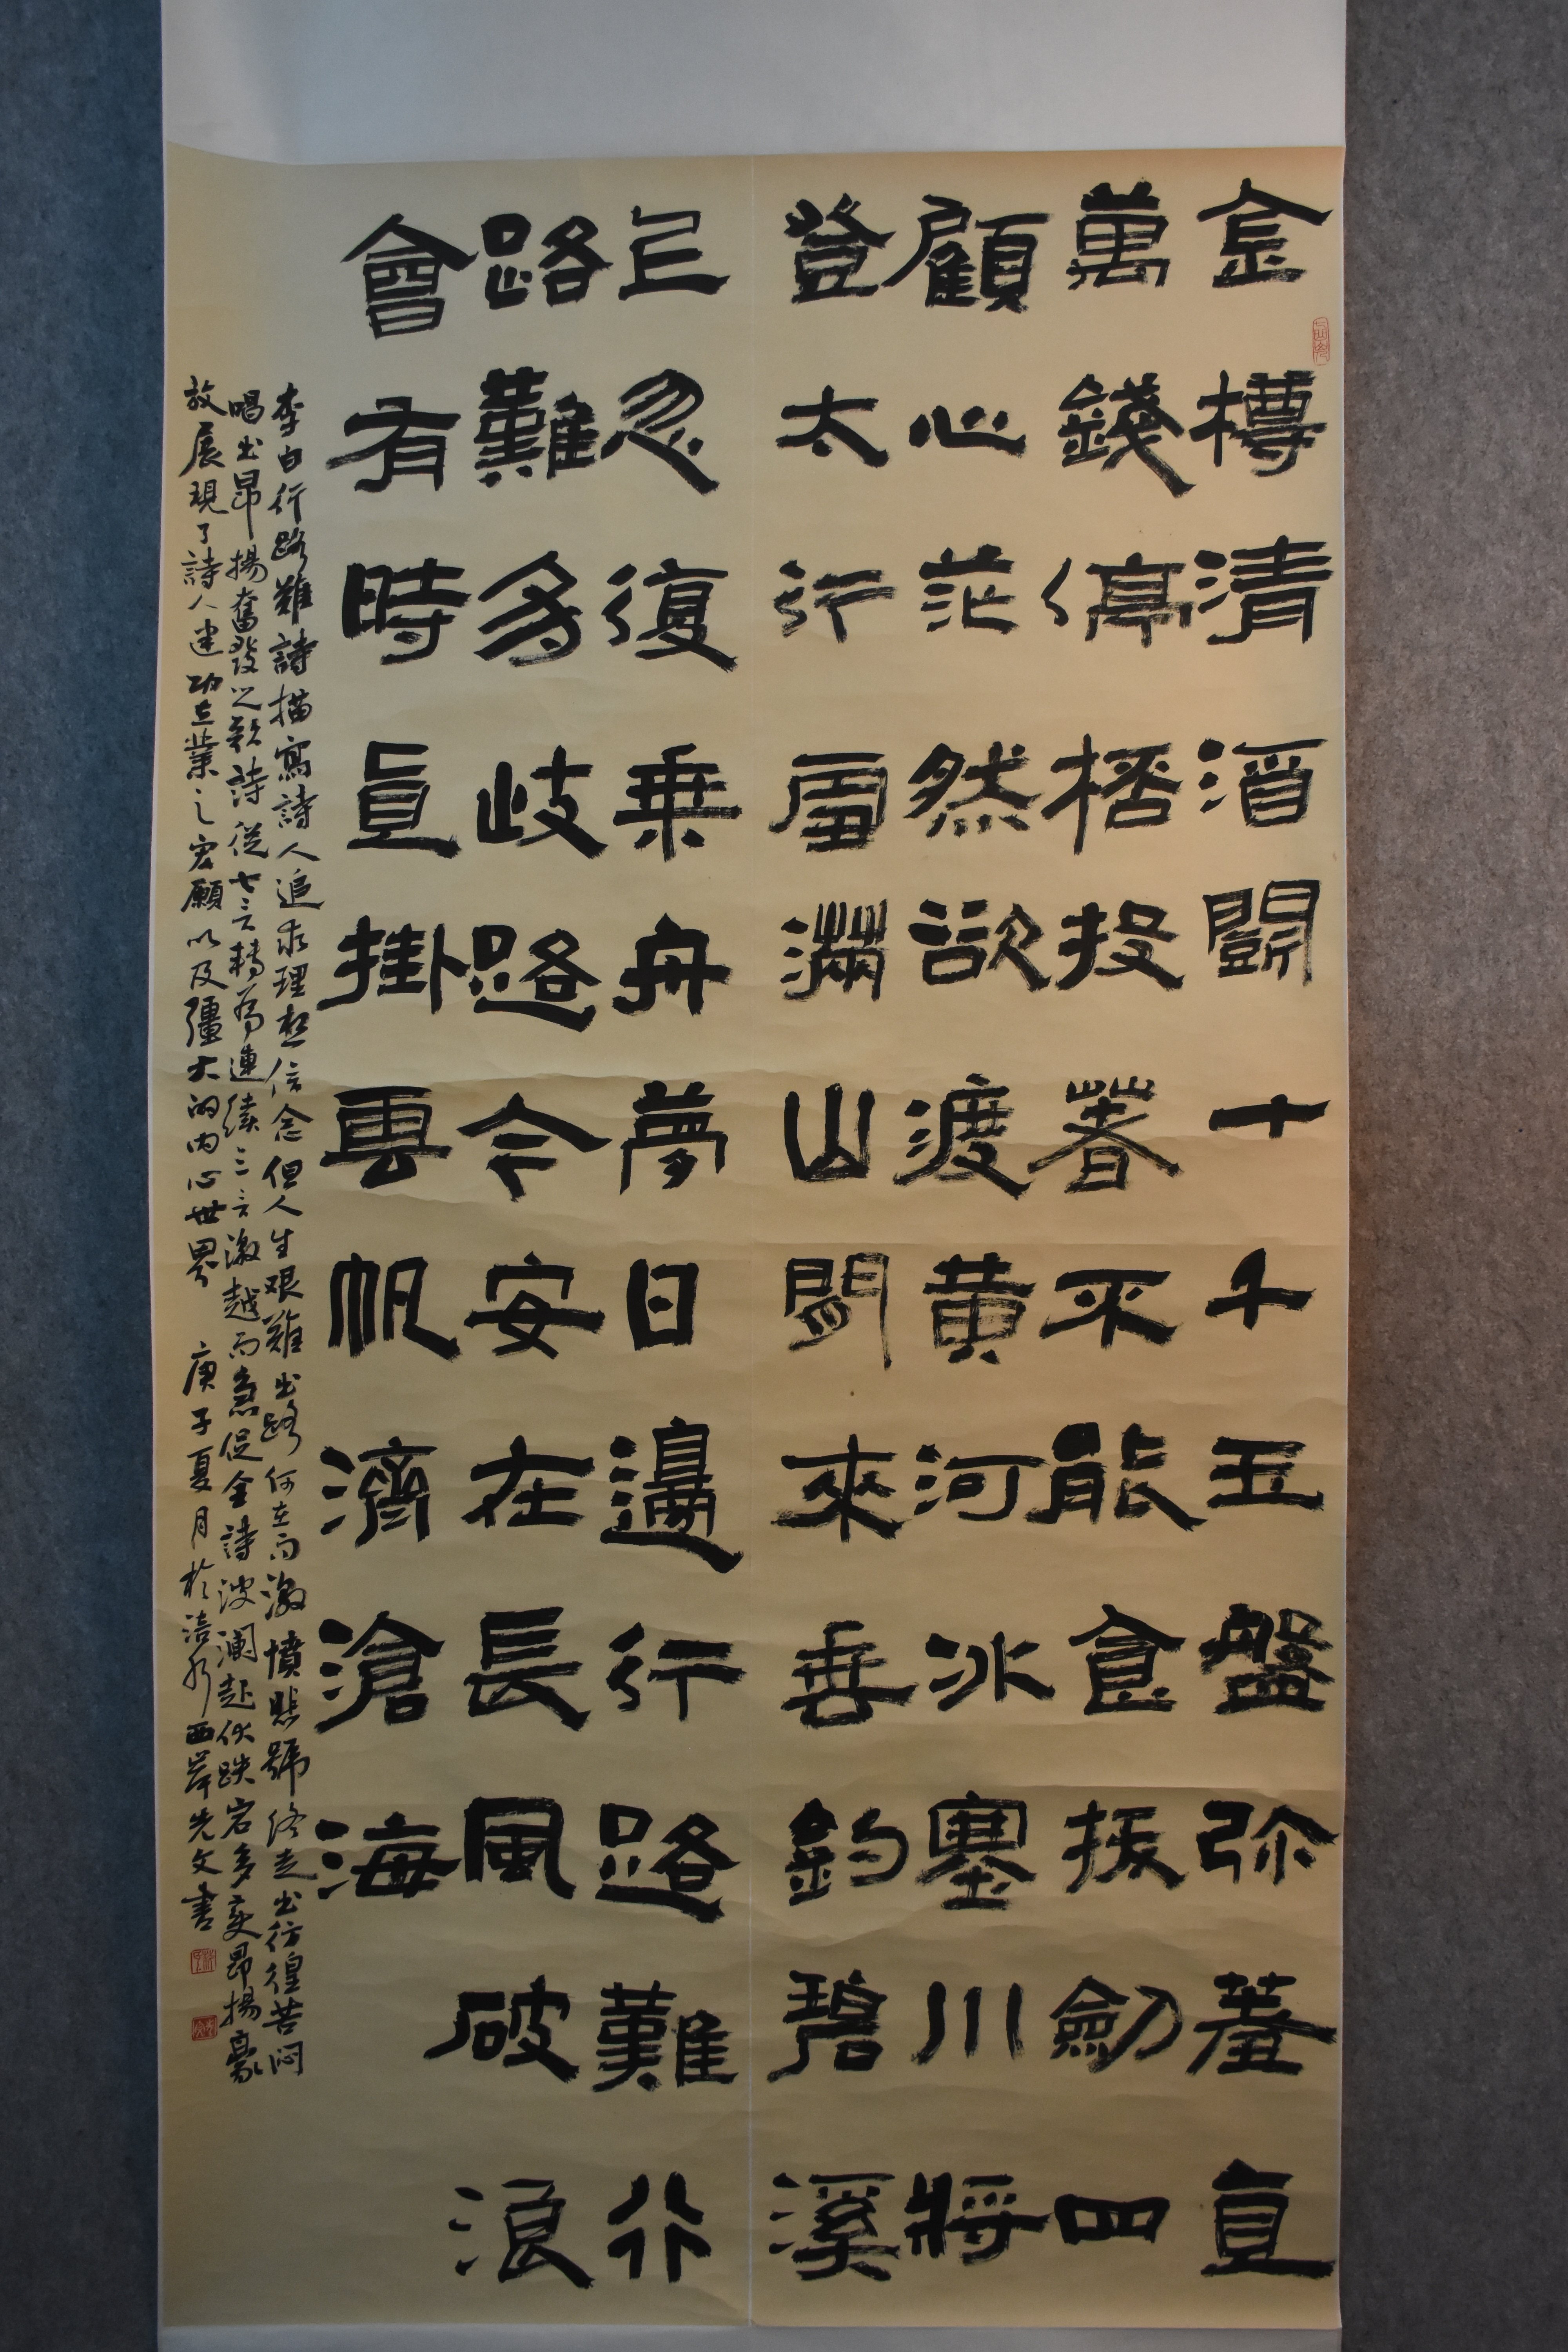 金樽清酒鬪十千玉盤弥羞直
萬錢停桮投箸不能食拔劍四
顧心茫然欲渡黃河冰塞川將
登太行雪滿山閒來垂釣碧溪
上忽復乗舟夢日邊行路難行
路難多歧路今安在長風破浪
會有時直掛雲帆濟滄海
李白行路難詩描寫詩人追求理想信念但人生艰難出路何在而激憤悲號終走出彷徨苦闷
唱出昂揚奮發之歌詩從七言轉為連续三言激越而急促全詩波瀾起伏跌宕多变昂揚豪
放展現了詩人建功立業之宏願以及彊大的内心世界 庚子夏月於涪水西岸先文書